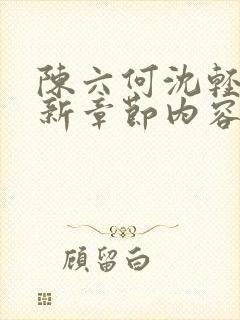 陳六何沈輕
新章節內容
顧留白